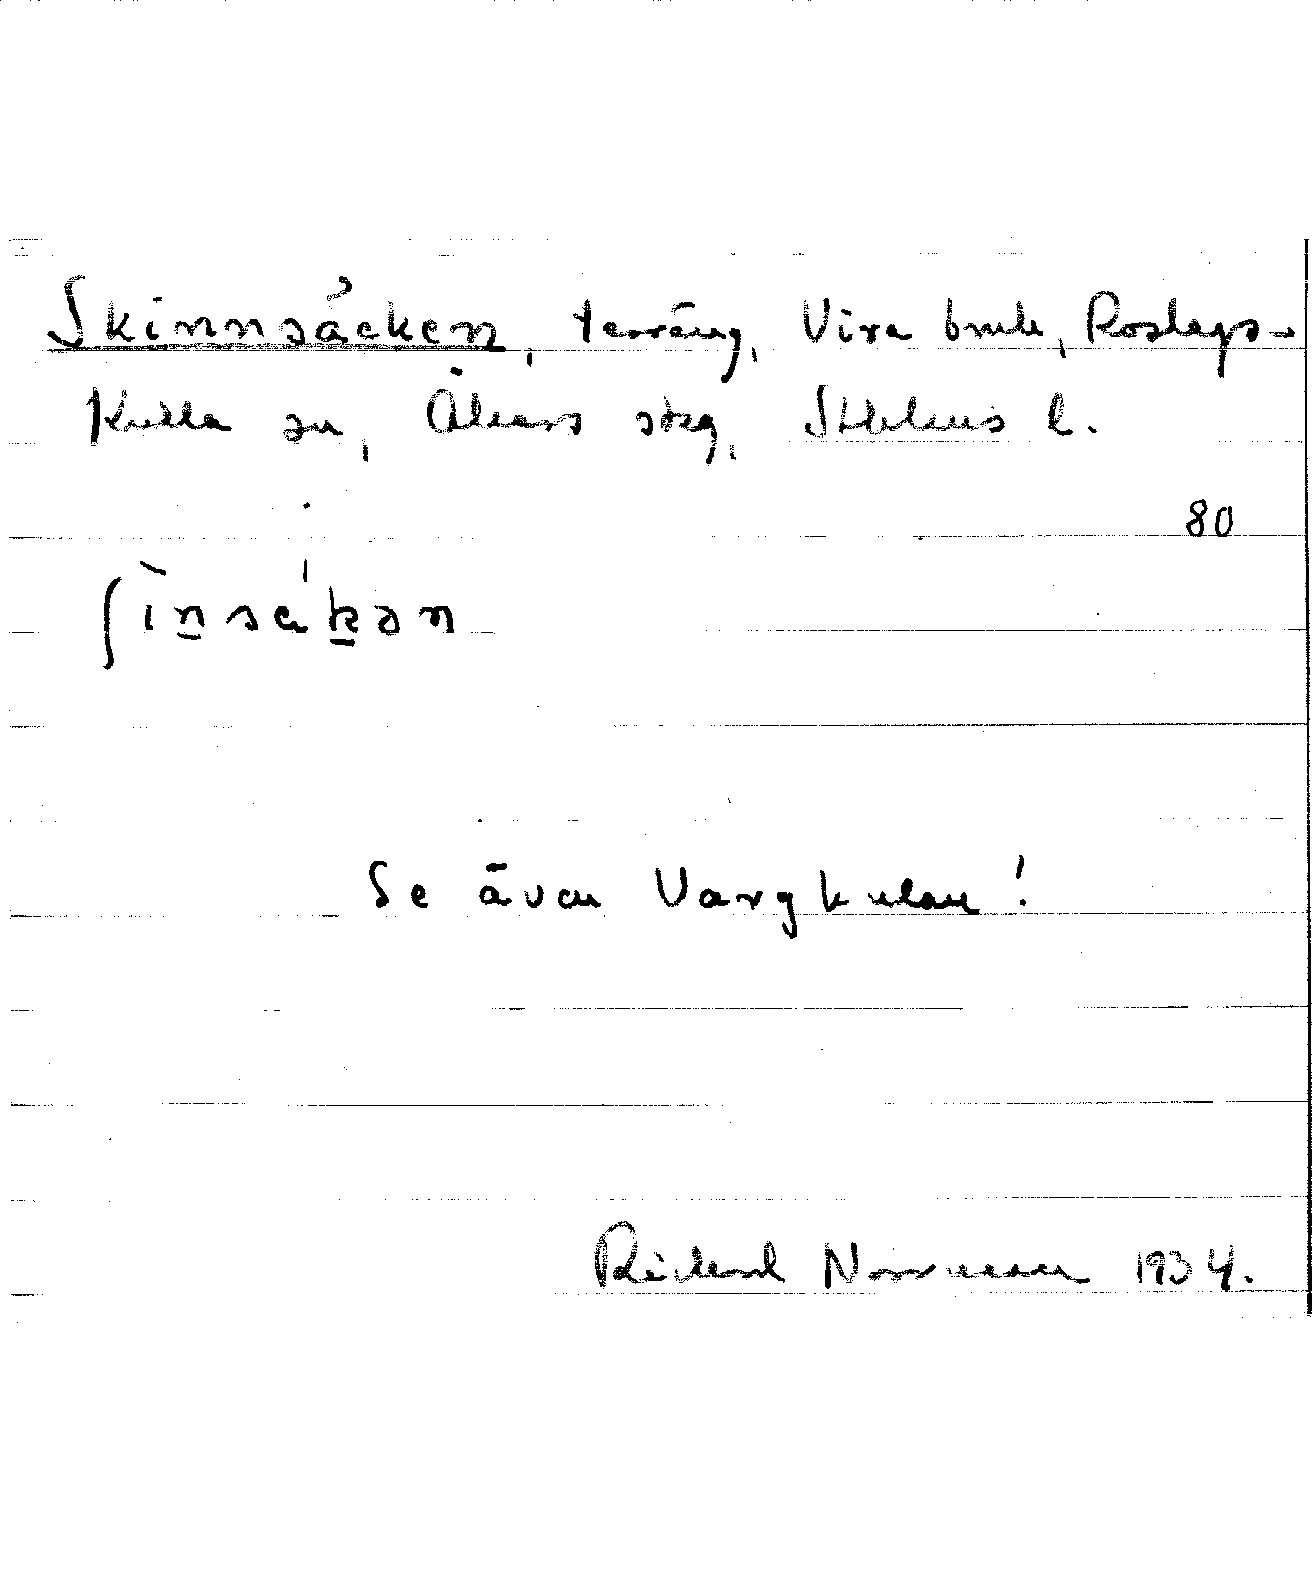 Skinnsäcken, terräng, Vira bruk, Roslags-
Kulla sn, Åkers skg, Sthlms l.
80
ʃìn̲sák̲ən
Se även Vargkulan!
Rickard Norrman 1934.